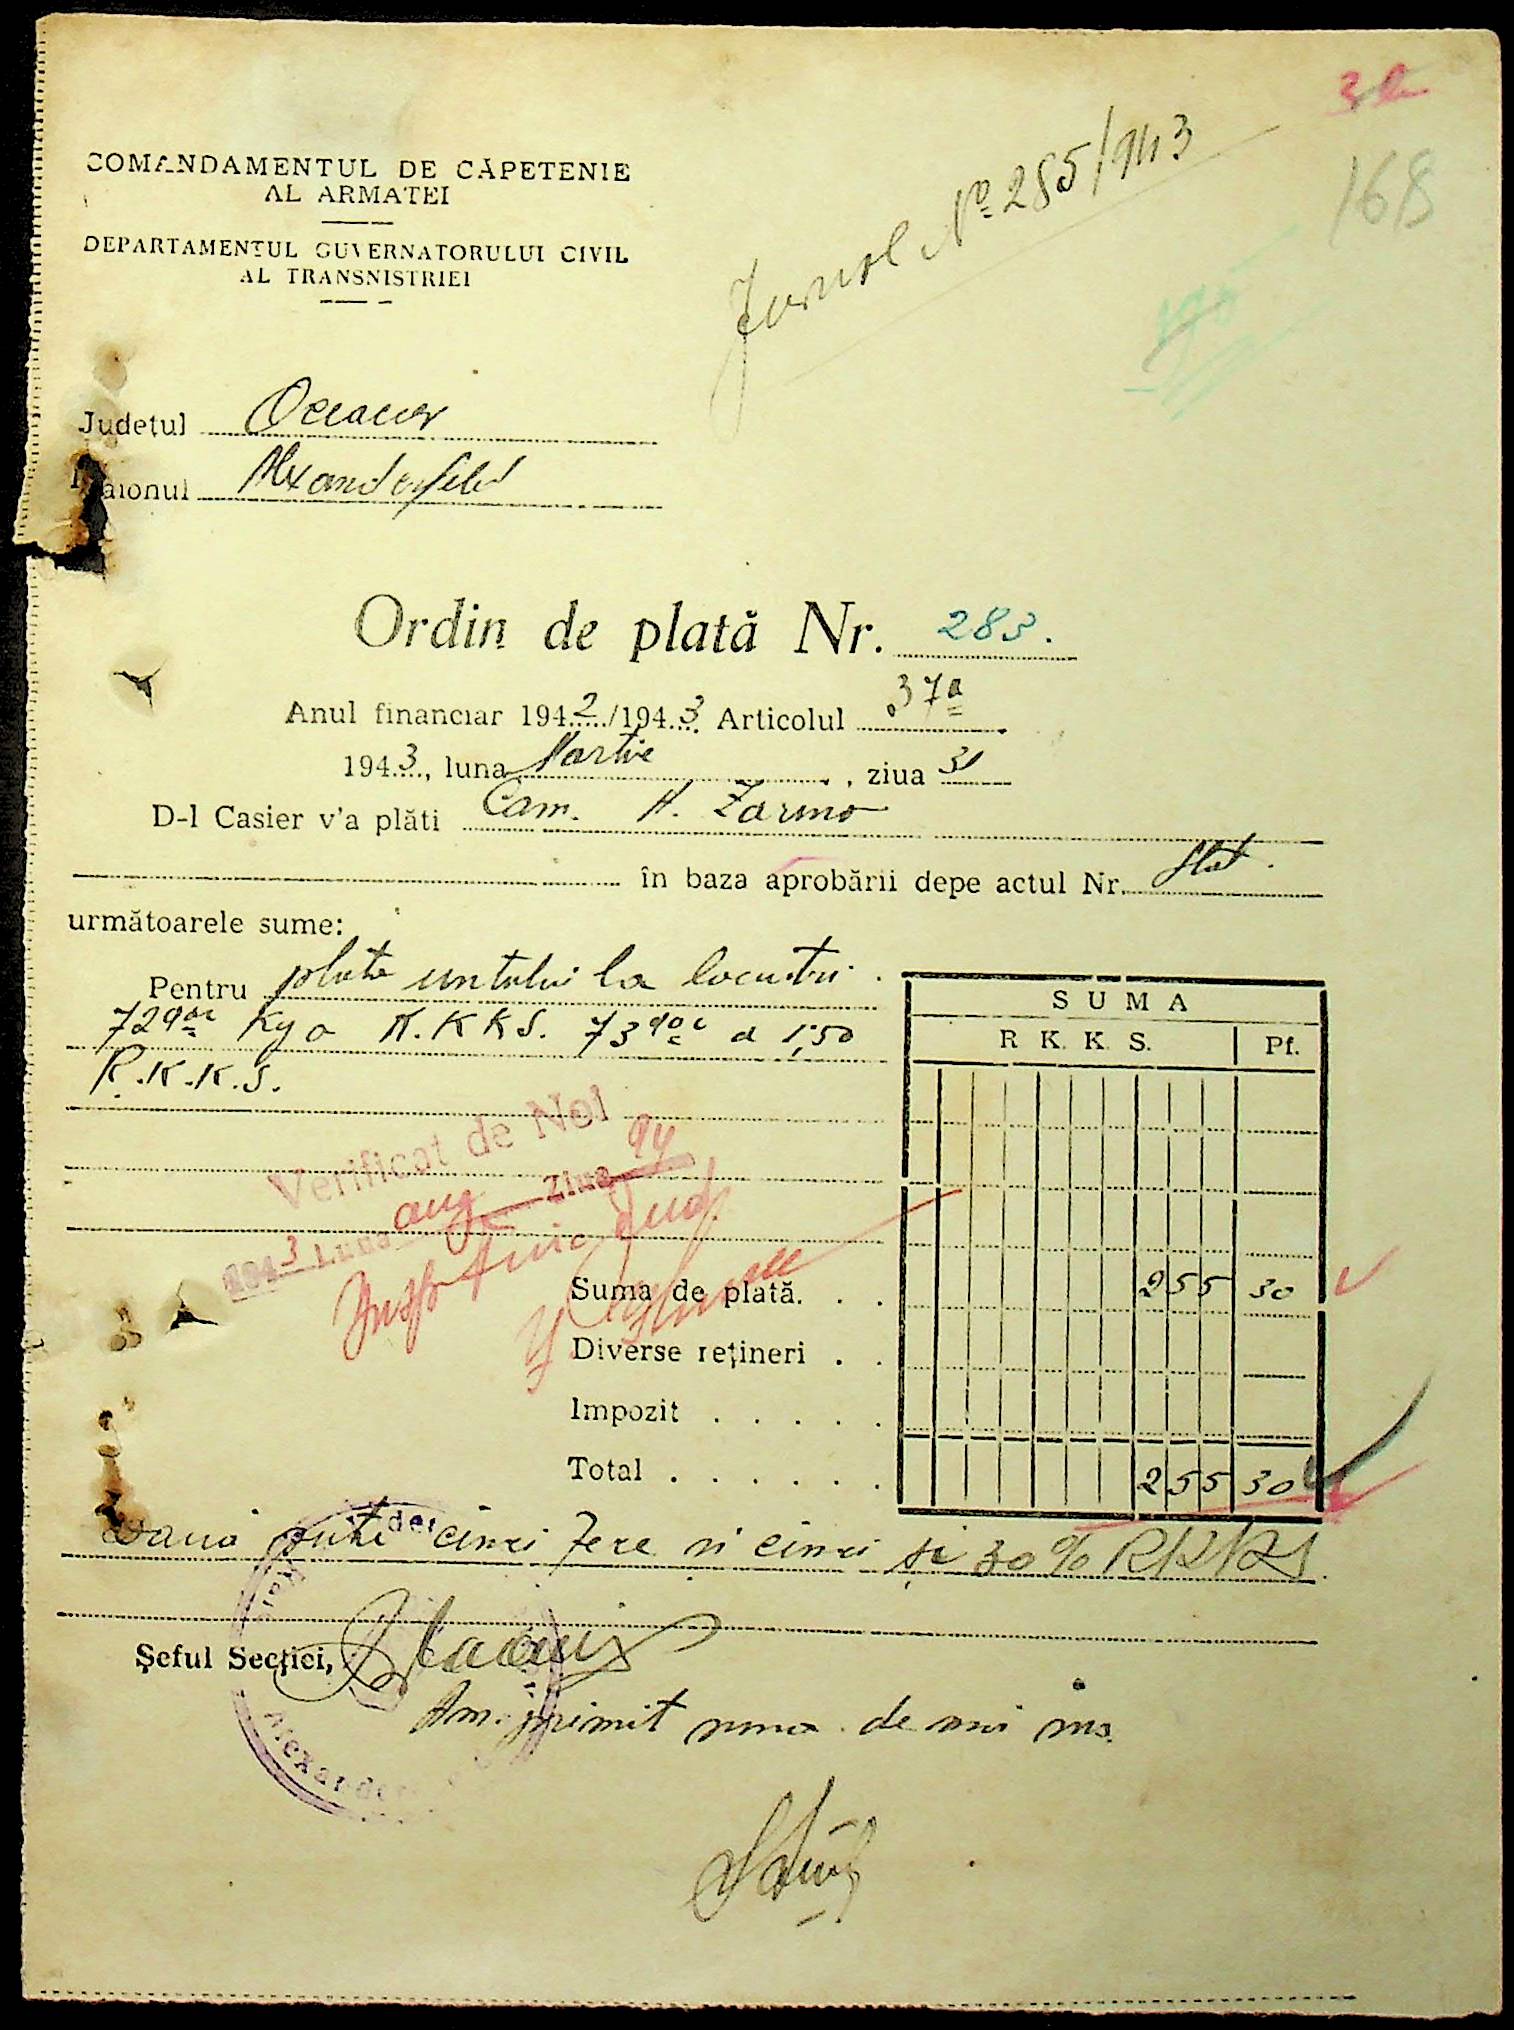 168
Jurnal No 285/943
COMANDAMENTUL DE CĂPETENIE
AL ARMATEI
DEPARTAMENTUL GUVERNATORULUI CIVIL
AL TRANSNISTRIEI
Județul Oceacov
Raionul Alexanderfeld
Ordin de plată Nr. 283.
Anul financiar 1942/1943 Articolul 37a
1943, luna Martie, ziua 31
D-l Casier v'a plăti Cam.
în baza aprobării depe actul Nr. Stat.
următoarele sume:
Pentru plata untului la locuitori
SUMA
R K. K S. Pf.
R.K.K.S. a 1,50
R.K.K.S.
Verificat de Noi
1943 Luna aug Ziua
Suma de plată. . . 255 30
Diverse rețineri . .
Impozit . . . . .
Total . . . . . . 255 30
Două sute cinci zece si cinci și 30% RKKS
Șeful Secției,
Am primit suma de mai sus.